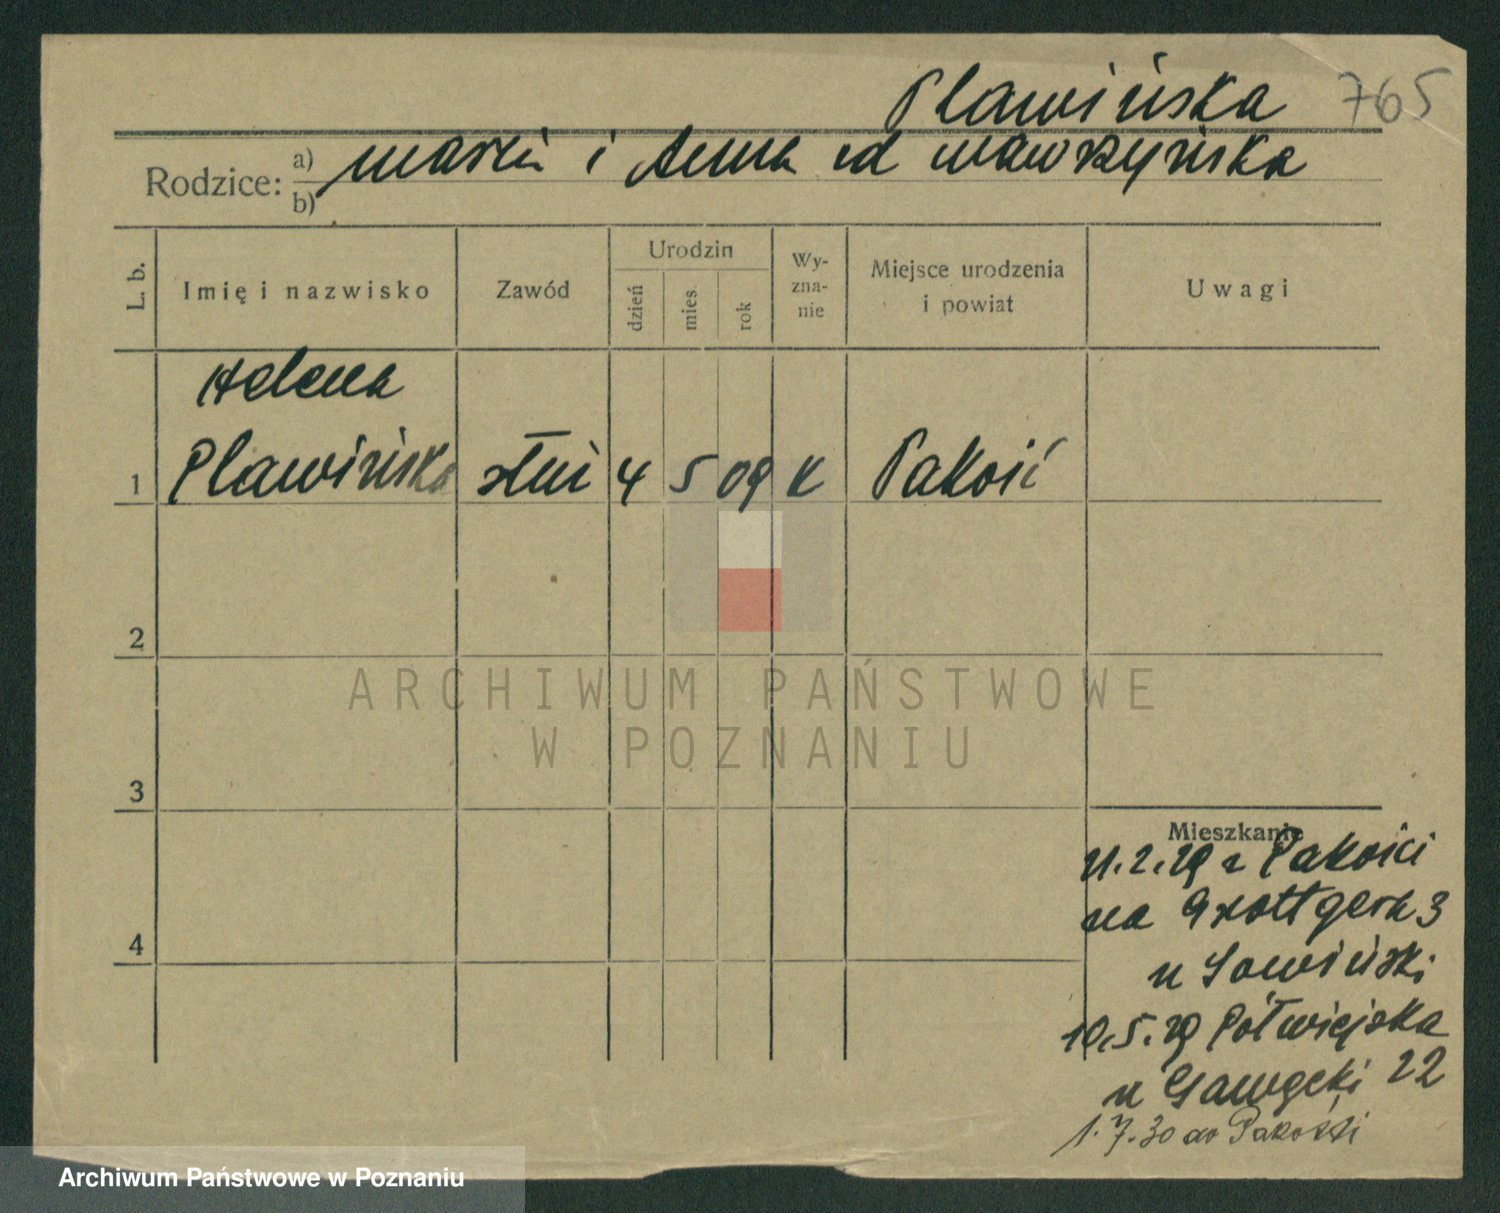 Plawińska 765
Rodzice: a) Marcin i Anna z d Wawrzyńska
b)
L. b. Imię i nazwisko Zawód Urodzin dzień mies rok Wy-zna-nie Miejsce urodzenia i powiat Uwagi
Helena
1 Plawińska służ 4 5 09 K Pakość
2
ARCHIWUM PAŃSTWOWE
W POZNANIU
3
Mieszkanie
21.2.29 z Pakości
na Grottgera 3
u Sowiński
4
10.5.29 Półwiejska
u Gawęcki 22
1.7.30 do Pakości
Archiwum Państwowe w Poznaniu